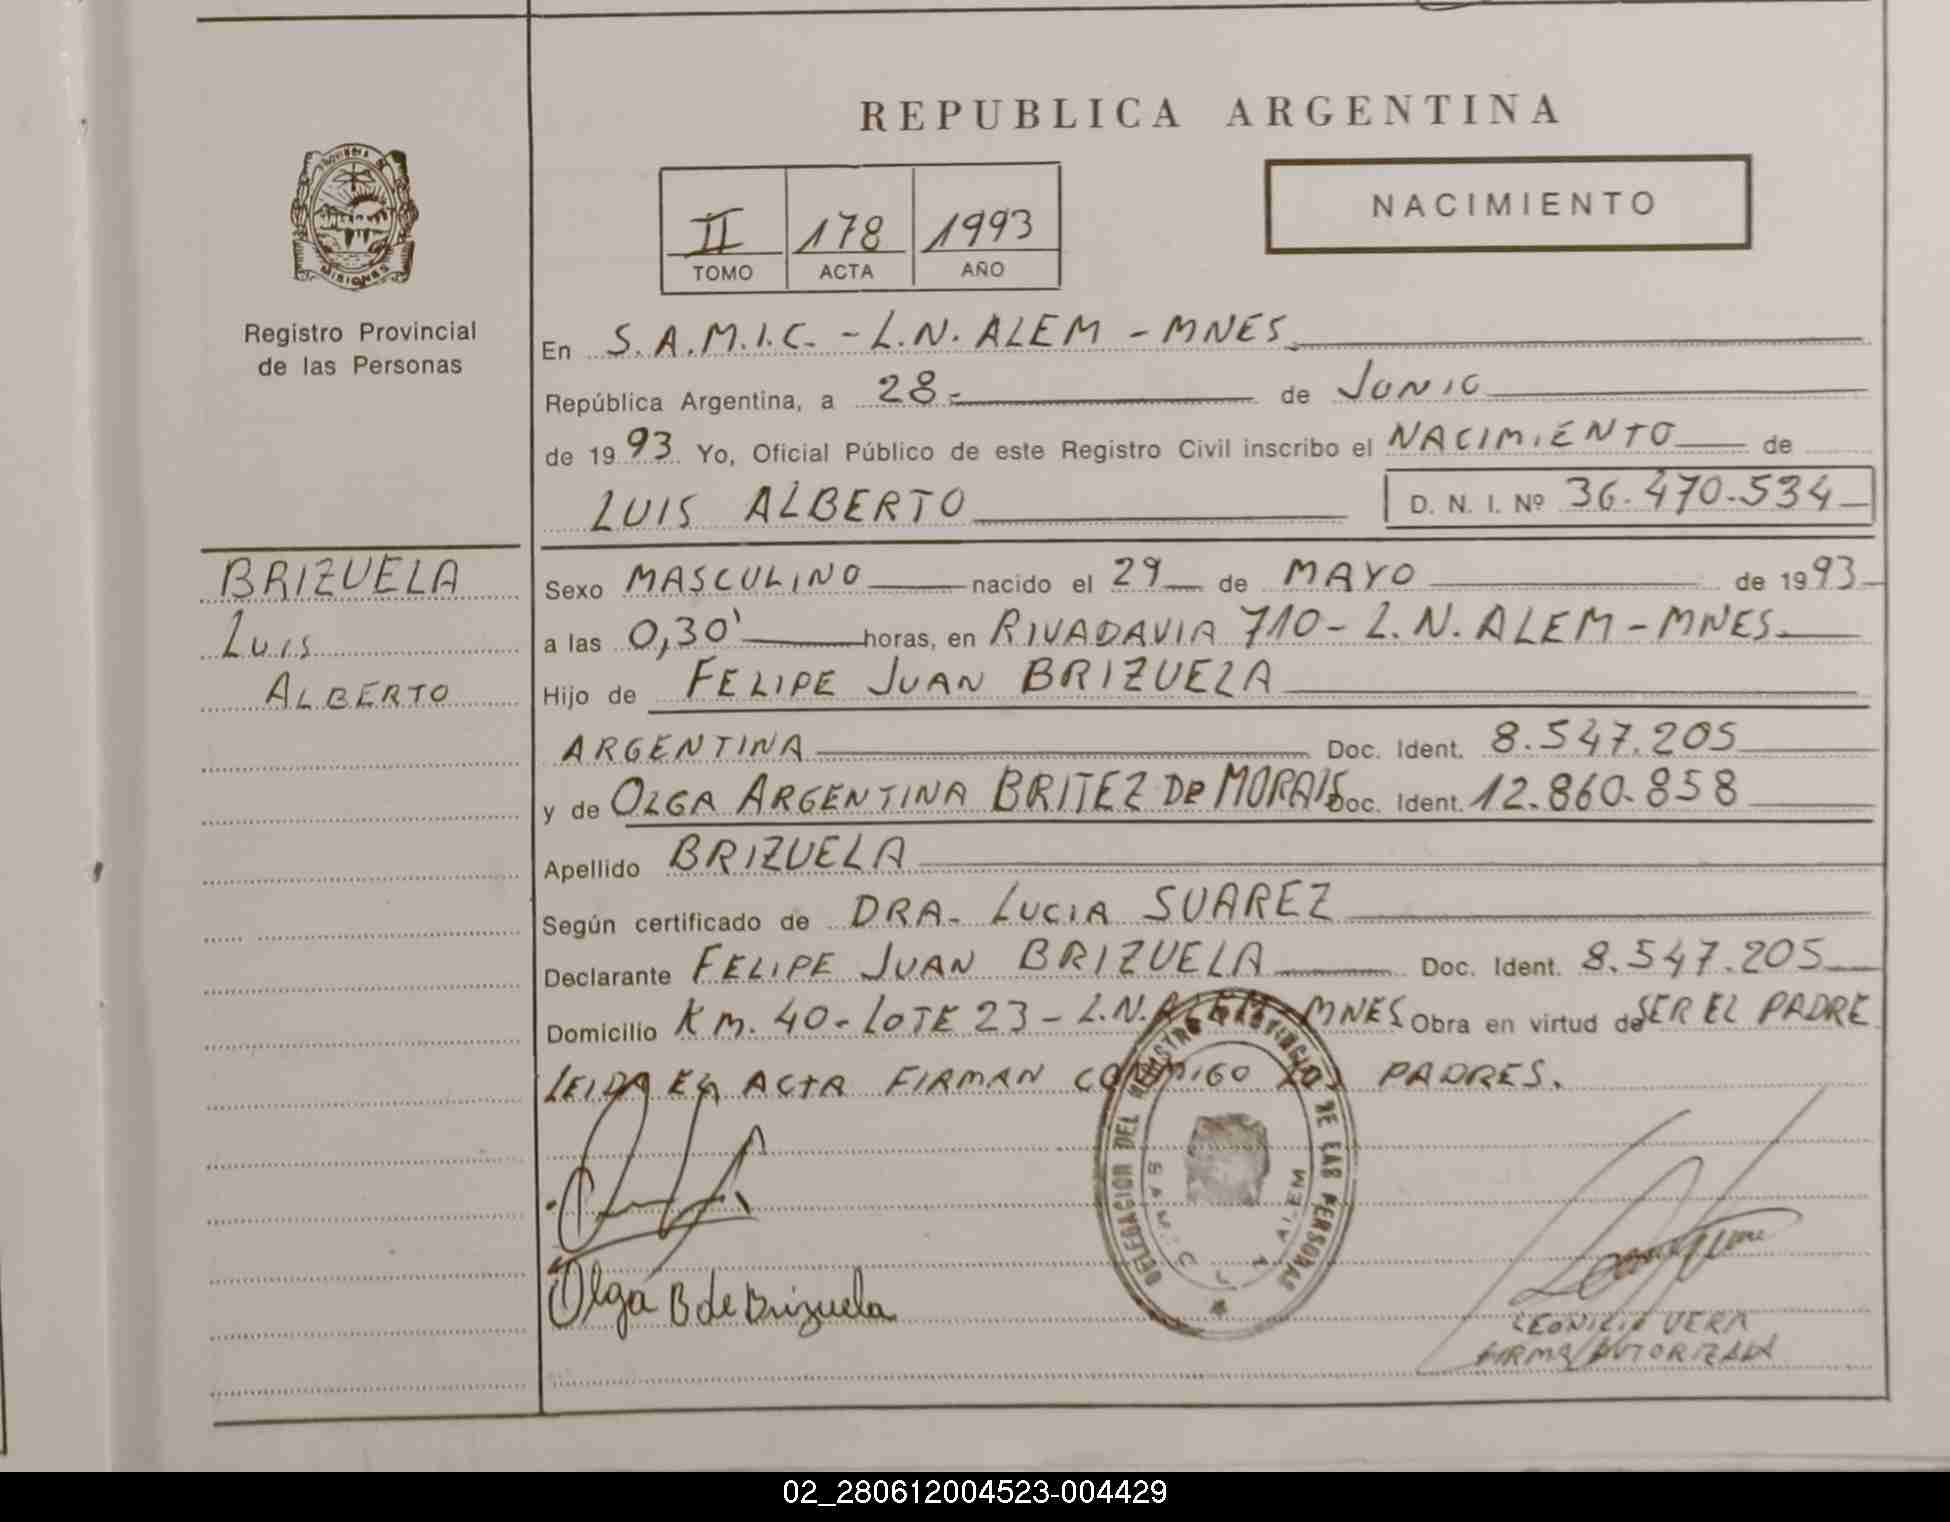 REPUBLICA ARGENTINA
PROVINCIA DE
MISIONES
Registro Provincial
de las Personas
II 178 1993
TOMO ACTA AÑO
NACIMIENTO
En S.A.M.I.C. - L.N. ALEM - MNES
República Argentina, a 28 - de JUNIO
de 1993 Yo, Oficial Público de este Registro Civil inscribo el NACIMIENTO de
LUIS ALBERTO D. N. I. Nº 36.470.534
BRIZUELA
LUIS
ALBERTO
Sexo MASCULINO nacido el 29 de MAYO de 1993
a las 0,30' horas, en RIVADAVIA 710 - L.N. ALEM - MNES.
Hijo de FELIPE JUAN BRIZUELA
ARGENTINA Doc. Ident. 8.547.205
y de OLGA ARGENTINA BRITEZ De MORAIS Doc. Ident. 12.860.858
Apellido BRIZUELA
Según certificado de DRA. LUCIA SUAREZ
Declarante FELIPE JUAN BRIZUELA Doc. Ident. 8.547.205
Domicilio Km. 40 - LOTE 23 - L.N. ALEM MNES Obra en virtud de SER EL PADRE
LEIDA EL ACTA FIRMAN CONMIGO LOS PADRES.
DELEGACION DEL REGISTRO PROVINCIAL DE LAS PERSONAS
Olga B de Brizuela
VERA
FIRMA AUTORIZADA
02_280612004523-004429